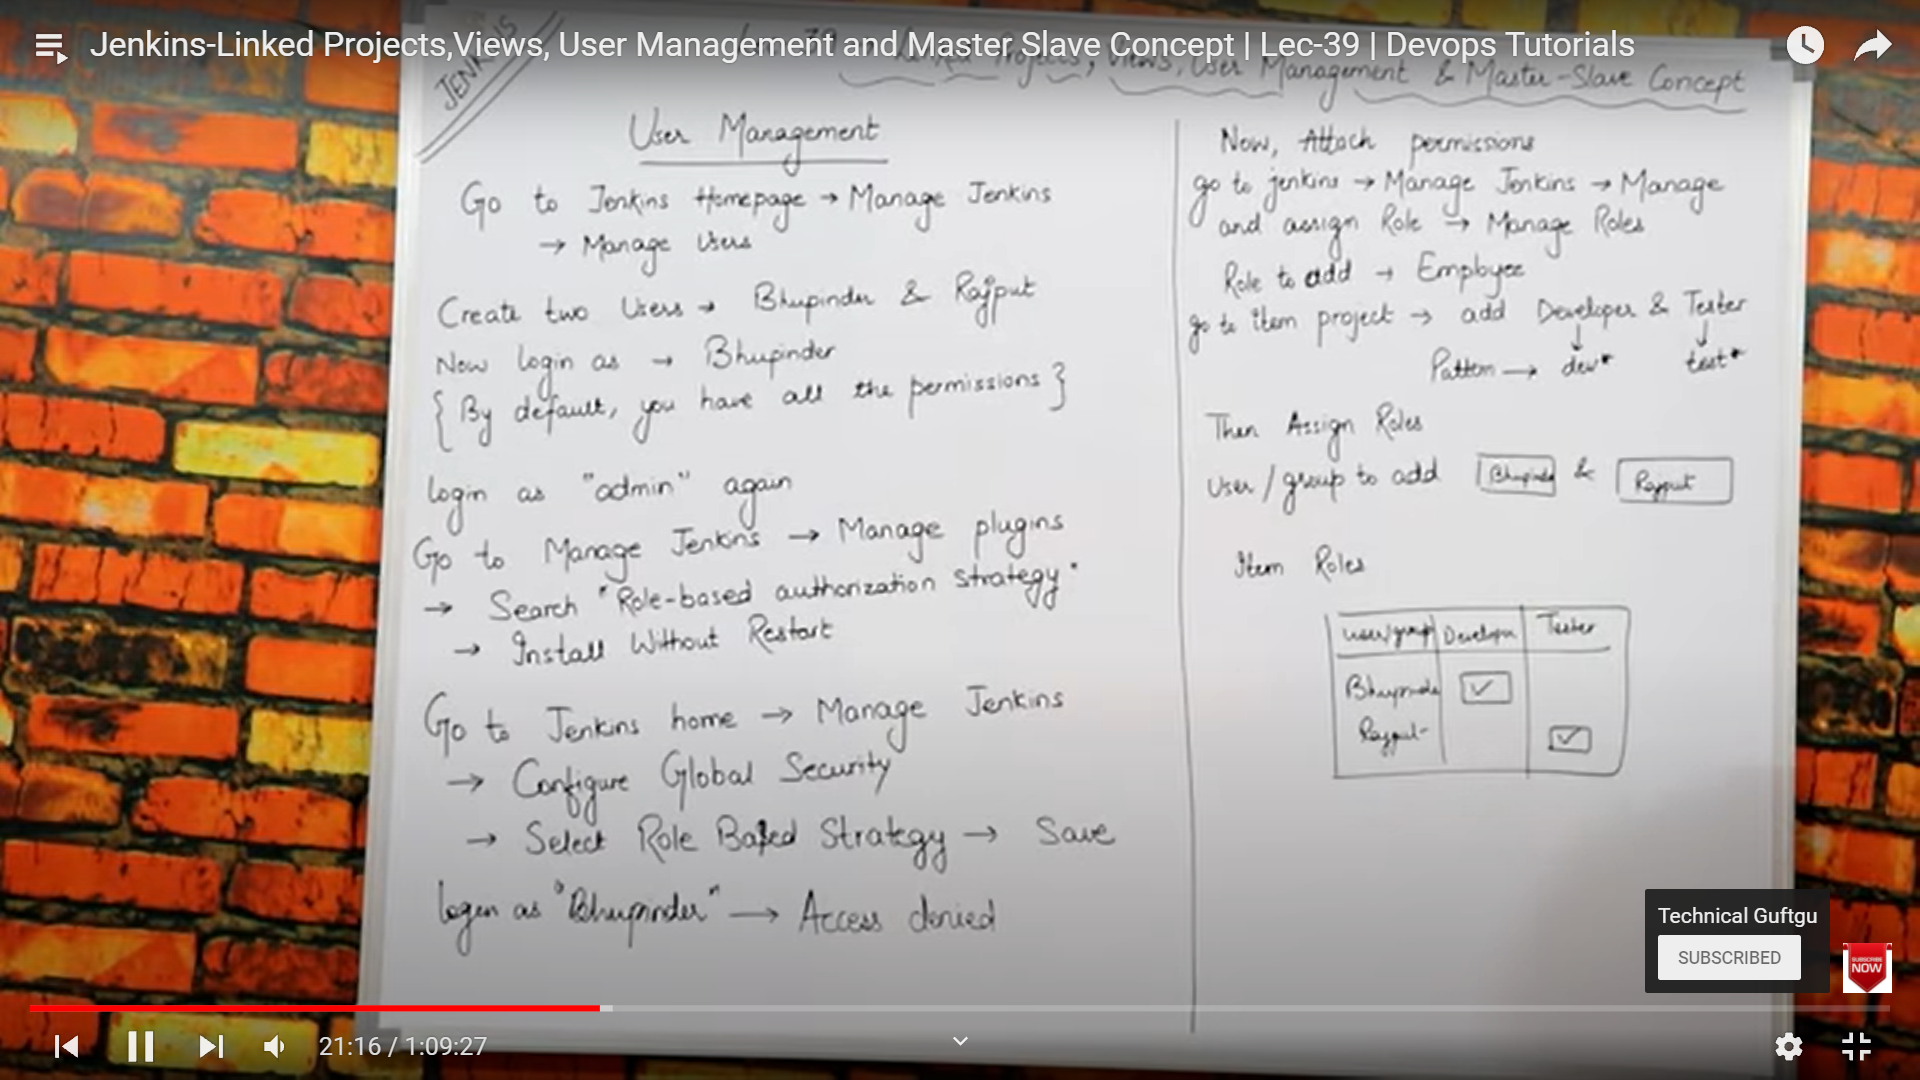 Jenkins-Linked Projects,Views, User Management and Master Slave Concept | Lec-39 | Devops Tutorials
JENKINS
Linked Projects, Views, User Management & Master-Slave Concept
User Management
Go to Jenkins Homepage → Manage Jenkins
→ Manage Users
Create two Users → Bhupinder & Rajput
Now login as → Bhupinder
{ By default, you have all the permissions }
login as "admin" again
Go to Manage Jenkins → Manage plugins
→ Search "Role-based authorization strategy"
→ Install Without Restart
Go to Jenkins home → Manage Jenkins
→ Configure Global Security
→ Select Role Based Strategy → Save
login as "Bhupinder" → Access denied
Now, Attach permissions
go to jenkins → Manage Jenkins → Manage
and assign Role → Manage Roles
Role to add → Employee
go to item project → add Developer & Tester
↓ ↓
Pattern → dev* test*
Then Assign Roles
User/group to add Bhupinder & Rajput
Item Roles
user/group Developer Tester
Bhupinder ✓
Rajput ✓
Technical Guftgu
SUBSCRIBED
SUBSCRIBE
NOW
21:16 / 1:09:27